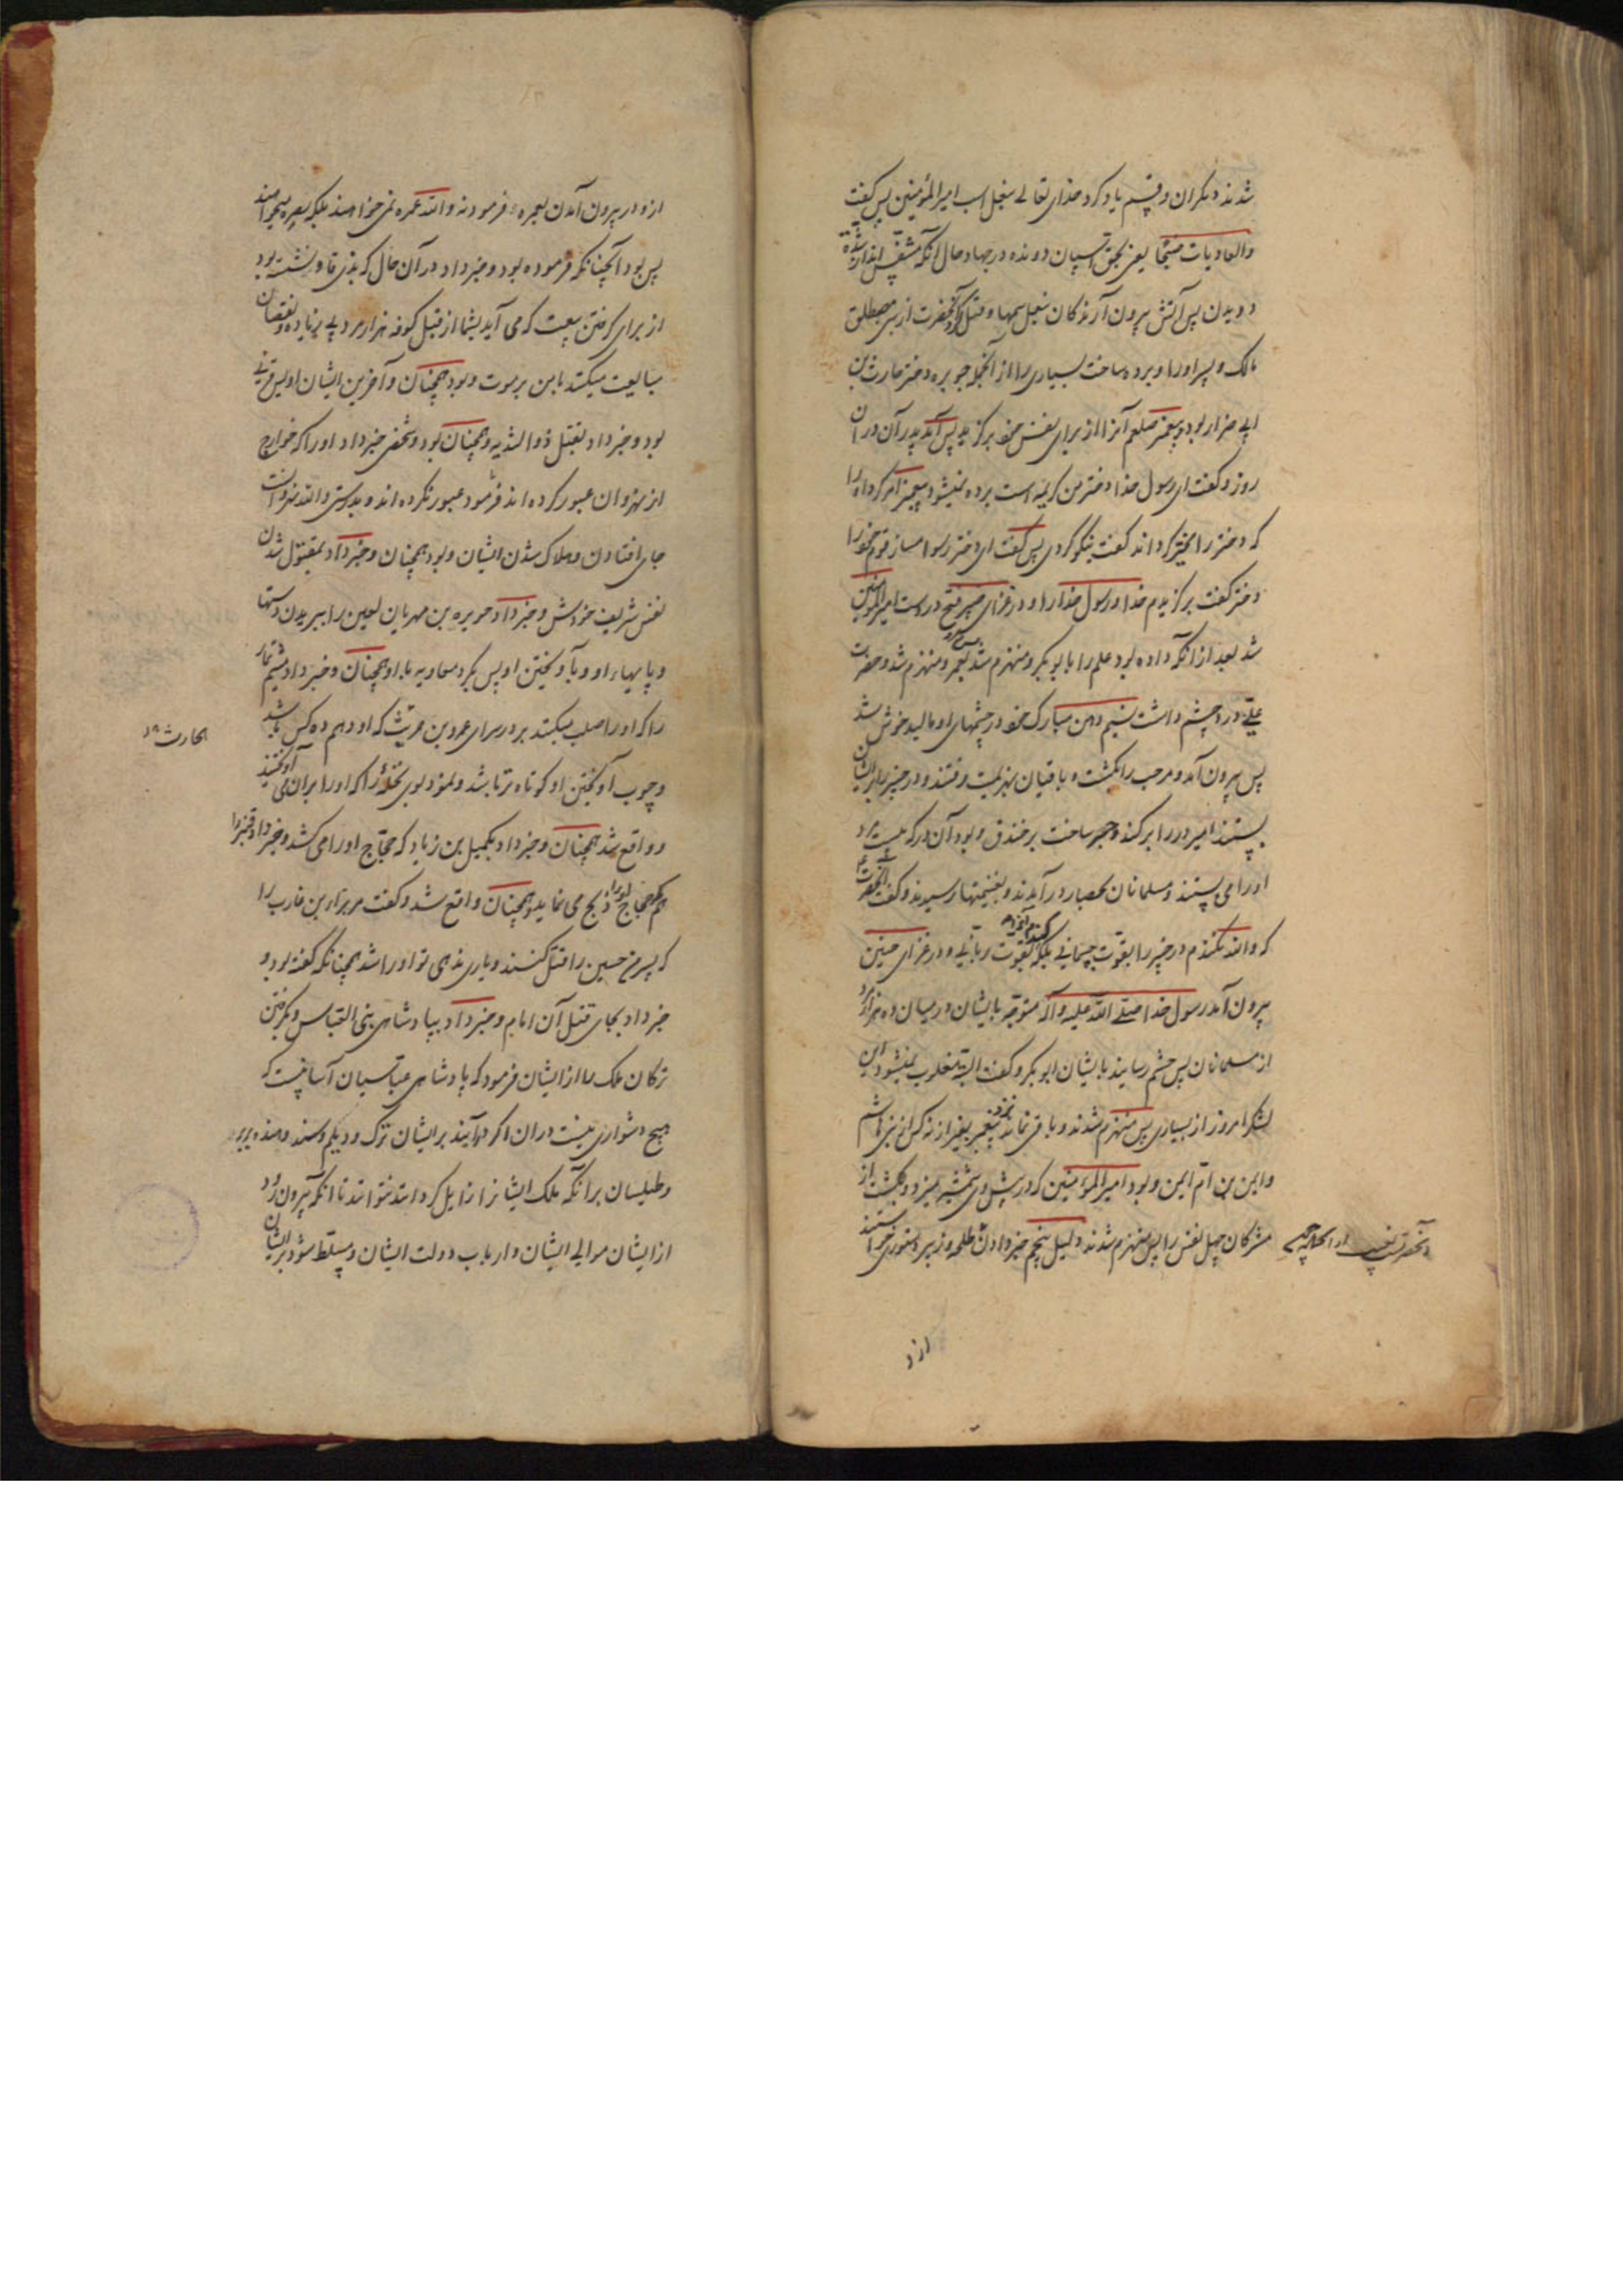 شدند دیگران و قسم یاد کرد خدای تعالی بفعل اسب امیر المؤمنین پس گفت
والعادیات ضبحا یعنی بحق اسپان دونده در جهاد حال آنکه مشقت
دویدن پس آتش بیرون آرندگان بفعل سمها و قتل کرد آنحضرت از بنی مصطلق
مالک و پسر او را و برده ساخت بسیاری را از آنجمله جویره دختر حارث بن
ابی ضرار بود و پیغمبر صلعم آنرا از برای نفس خود برگزید پس آمد پدر آن در آن
روز و گفت ای رسول خدا دختر من کریمه است برده نمیشود پیغمبر امر کرد او را
که دختر را مخیر گرداند گفت نیکو کردی پس گفت ای دختر رسوا مساز قوم خود را
دختر گفت برگزیدم خدا و رسول خدا را و در غزای خیبر فتح در دست امیر المؤمنین
شد بعد از آنکه داده بود علم را بابو بکر و منهزم شد پس بعمر و منهزم شد و حضرت
علی درد چشم داشت دهن مبارک خود در چشمهای او مالید خوش شد
پس بیرون آمد و مرحب را بکشت و باقیان بهزیمت رفتند و در خیبر را بر ایشان
بستند امیر در را برکند و جسر ساخت بر خندق و بود آن در که بیست مرد
او را می بستند و مسلمانان بحصار در آمدند و بغنیمتها رسیدند و گفت آنحضرت
که والله نکندم در خیبر را بقوت جسمانی بلکه کندم آنرا بقوت ربانی و در غزای حنین
بیرون آمد رسول خدا صلی الله علیه و آله متوجه بایشان در میان ده هزار مرد
از مسلمانان پس چشم رسانید بایشان ابو بکر و گفت البته مغلوب نمیشود این
لشکر امروز از بسیاری پس منهزم شدند و باقی نماند نزد پیغمبر بغیر از نه کس از بنی هاشم
و ایمن بن ام ایمن و بود امیر المؤمنین که در پیش وی شمشیر میزد و بکشت از
مشرکان چهل نفس را پس منهزم شدند دلیل پنجم خبر دادن طلحه و زبیر دستوری خواستند
از و
ازو در بیرون آمدن بعمره فرمود نه والله عمره نمی خواهند بلکه بصره میخواهند
پس بود آنچنانکه فرموده بود و خبر داد در آن حال که بذی قار نشسته بود
از برای گرفتن بیعت که می آید بشما از قبل کوفه هزار مرد بی زیاده و نقصان
مبایعت میکنند بامن بر موت و بود همچنان و آخرین ایشان اویس قرنی
بود و خبر داد بقتل ذو الثدیه و همچنان بود و شخصی خبر داد او را که خوارج
از نهروان عبور کرده اند فرمود عبور نکرده اند و بدرستی والله نهروانست
جای افتادن و هلاک شدن ایشان و بود همچنان و خبر داد بمقتول شدن
نفس شریف خودش و خبر داد جویره بن مهریان لعین را ببریدن دستها
و پایهاء او و بآویختن او پس کرد معاویه با او همچنان و خبر داد میثم تمار
را که او را صلب میکنند بر در سرای عمرو بن حریث که او دهم ده کس باشد
و چوب آویختن او کوتاه تر باشد و نمود بوی نخله را که او را بران می آویختند
و واقع شد همچنان و خبر داد بکمیل بن زیاد که حجاج او را می کشد و خبر داد قنبر را
که حجاج او را ذبح می نماید و همچنان واقع شد و گفت مر براء بن عازب را
که پسر من حسین را قتل کنند و یاری ندهی تو او را شد همچنانکه گفته بود و
خبر داد بجای قتل آن امام و خبر داد بپادشاهی بنی العباس و بگرفتن
ترکان ملک را از ایشان فرمود که پادشاهی عباسیان آسانیست که
هیچ دشواری نیست در ان اگر بر ایشان ترک و دیلم و سند و هند و بربر
و طیلسان برآنکه ملک ایشانرا زایل گردانند نتوانند تا آنکه بیرون رود
از ایشان موالی ایشان و ارباب دولت ایشان و مسلط شود بر ایشان
الحارث